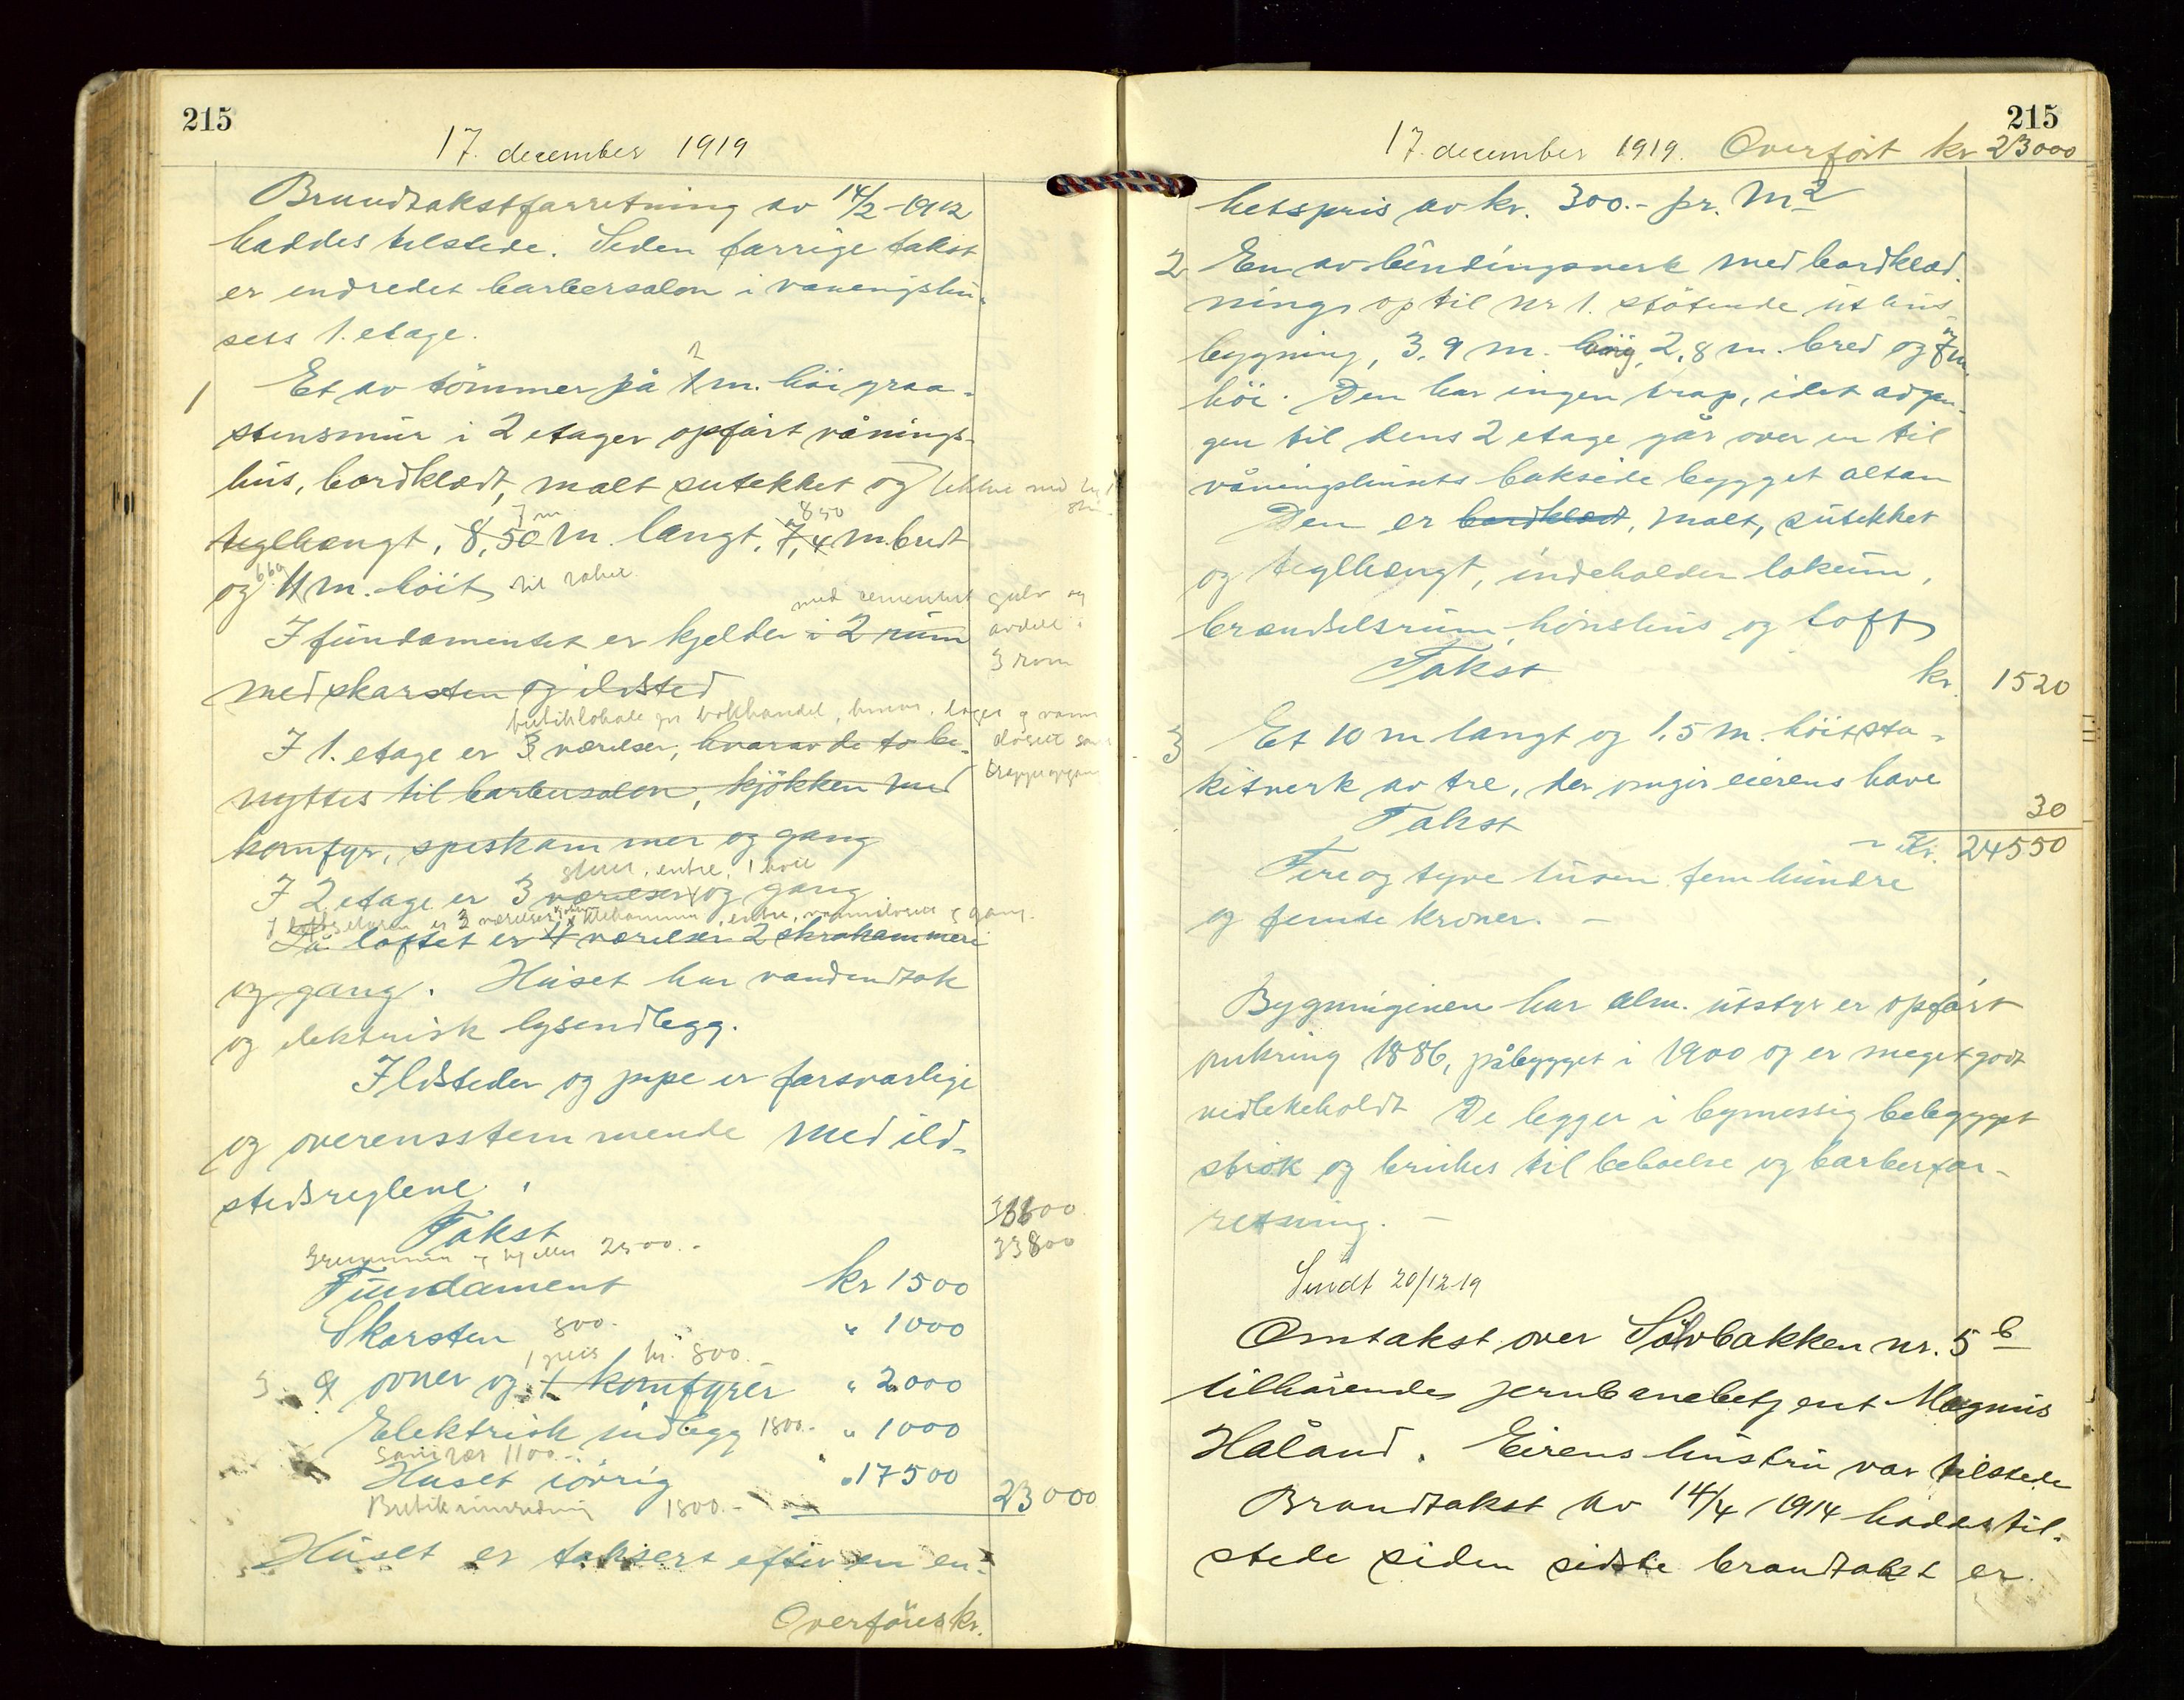 215
17. december 1919
Brandtakstforretning av 14/2-1912
haddes tilstede. Siden forrige takst
er indredet barbersalon i vaaningshu-
sets 1. etage.
2
1 Et av tömmer på 1 m. höi graa-
stensmur i 2 etager opfört vånings-
hus, bordklædt, malt sutekket og tekket med
7 m 8 50
teglhængt, 8,50 m. langt, 7,4 m. bredt
6 60
og 11 m. höit til raher
med cementert gulv og
I fundamentet er kjelder i 2 rum avdelt i
3 rom
med skorsten og ildsted
butiklokale for bokhandel, lager og vann
I 1. etage er 3 værelser, hvorav de to be-
klosett samt
nyttes til barbersalon, kjökken med
trappeopgang
komfyr, spiskammer og gang
stuer, entre, 1
I 2. etage er 3 værelser og gang
I loftsetagen er 3 værelser, entre, vannklosett og gang.
På loftet er 4 værelser 2 skrakammeri
og gang. Huset har vandindtak
og elektrisk lysindlegg.
Ildsteder og pipe er forsvarlige
og overensstemmende med ild-
stedsreglene.
36600
Takst
33800
Grunnmur og kjeller 2500.-
Fundament kr 1500
Skorsten 800.- " 1000
1 kr. 800.-
3 9 ovner og 1 komfyrer " 2000
Elektrisk indlegg 1800.- " 1000
Sanitær 1100.-
Huset iövrig " 17500
23000
Butikkinnredning 1800.-
Huset er taksert efter en en-
Overföres kr.
215
17. december 1919. Overfört kr 23000
hetspris av kr. 300.- pr. m2
2 En av bindingsverk med bordklæd-
ning, op til nr 1. stötende uthus-
bygning, 3,9 m. lang, 2,8 m. bred og 7 m.
höi. Den har ingen trap, idet adgan-
gen til dens 2 etage går over en til
våningshusets bakside bygget altan
Den er bordklædt, malt, sutekket
og teglhængt, indeholder lokum,
brændselsrum, hönshus og loft
Takst kr. 1520
3 Et 10 m langt og 1,5 m. höit sta-
kitverk av tre, der omgir eierens have
Takst 30
Kr. 24550
Fire og tyve tusen fem hundre
og femti kroner. -
Bygningenen har alm. utstyr er opfört
omkring 1886, påbygget i 1900 og er meget godt
vedlikeholdt De legger i bymessig bebygget
strök og brukes til beboelse og barberfor-
retning. -
Sendt 20/12 19
Omtakst over Sölvbakken nr. 5 b
tilhörende jernbanebetjent Magnus
Håland. Eierens hustru var tilstede
Brandtakst av 14/4 1914 haddes til-
stede siden sidste brandtakst er